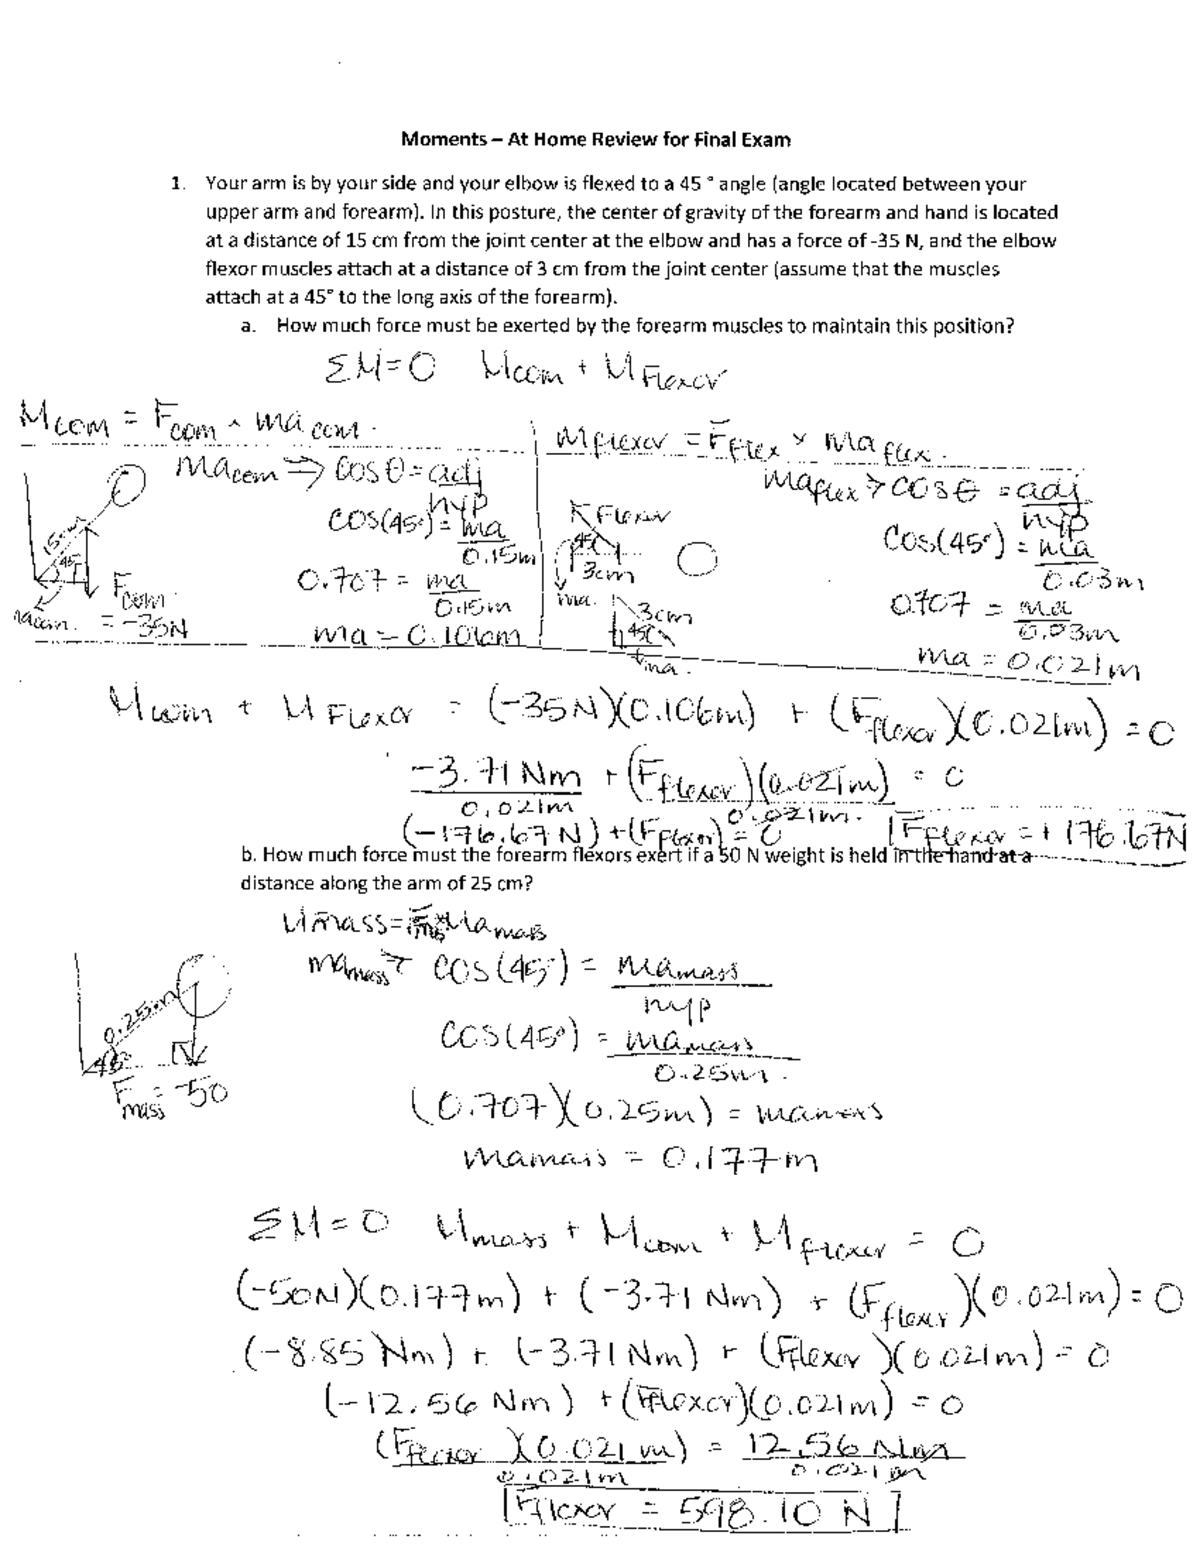 Moments – At Home Review for Final Exam
1. Your arm is by your side and your elbow is flexed to a 45 ° angle (angle located between your
upper arm and forearm). In this posture, the center of gravity of the forearm and hand is located
at a distance of 15 cm from the joint center at the elbow and has a force of -35 N, and the elbow
flexor muscles attach at a distance of 3 cm from the joint center (assume that the muscles
attach at a 45° to the long axis of the forearm).
a. How much force must be exerted by the forearm muscles to maintain this position?
ΣM=0 Mcom + MFlexor
Mcom = Fcom × macom.
macom ⇒ cosθ = adj/hyp
cos(45°) = ma/0.15m
0.707 = ma/0.15m
ma = 0.106m
15cm
45
Fcom = -35N
macom.
Mflexor = Fflex × maflex.
maflex → cosθ = adj/hyp
cos(45°) = ma/0.03m
0.707 = ma/0.03m
ma = 0.021m
Flexor
45
3cm
ma.
3cm
45
ma.
Mcom + MFlexor = (-35N)(0.106m) + (Fflexor)(0.021m) = 0
-3.71 Nm + (Fflexor)(0.021m) = 0
0.021m 0.021m.
(-176.67 N) + (Fflexor) = 0 Fflexor = + 176.67N
b. How much force must the forearm flexors exert if a 50 N weight is held in the hand at a
distance along the arm of 25 cm?
Mmass = mamass
mamass → cos(45°) = mamass/hyp
cos(45°) = mamass/0.25m.
(0.707)(0.25m) = mamass
mamass = 0.177m
0.25m
45°
Fmass = -50
ΣM=0 Mmass + Mcom + Mflexor = 0
(-50N)(0.177m) + (-3.71 Nm) + (Fflexor)(0.021m) = 0
(-8.85 Nm) + (-3.71 Nm) + (Fflexor)(0.021m) = 0
(-12.56 Nm) + (Fflexor)(0.021m) = 0
(Fflexor)(0.021m) = 12.56 Nm
0.021m 0.021m
Fflexor = 598.10 N